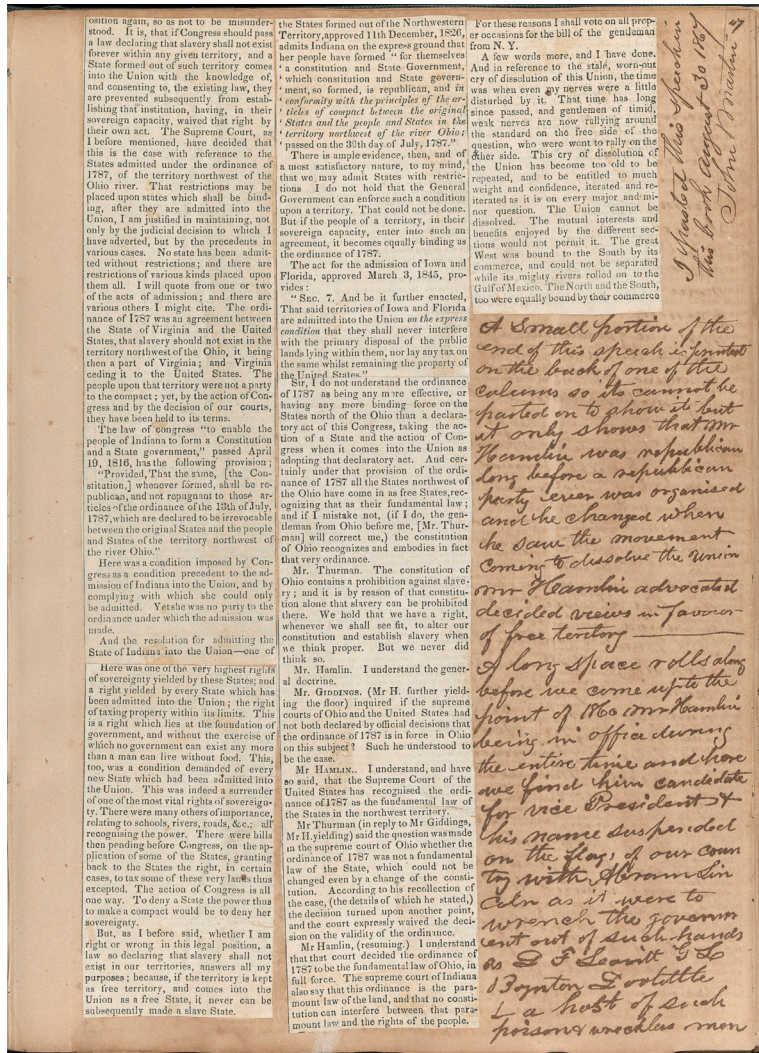 osition again, so as not to be misunder-
stood. It is, that if Congress should pass
a law declaring that slavery shall not exist
forever within any given territory, and a
State formed out of such territory comes
into the Union with the knowledge of,
and consenting to, the existing law, they
are prevented subsequently from estab-
lishing that institution, having, in their
sovereign capacity, waived that right by
their own act. The Supreme Court, as
I before mentioned, have decided that
this is the case with reference to the
States admitted under the ordinance of
1787, of the territory northwest of the
Ohio river. That restrictions may be
placed upon states which shall be bind-
ing, after they are admitted into the
Union, I am justified in maintaining, not
only by the judicial decision to which I
have adverted, but by the precedents in
various cases. No state has been admit-
ted without restrictions; and there are
restrictions of various kinds placed upon
them all. I will quote from one or two
of the acts of admission; and there are
various others I might cite. The ordi-
nance of 1787 was an agreement between
the State of Virginia and the United
States, that slavery should not exist in the
territory northwest of the Ohio, it being
then a part of Virginia; and Virginia
ceding it to the United States. The
people upon that territory were not a party
to the compact; yet, by the action of Con-
gress and by the decision of our courts,
they have been held to its terms.
The law of congress "to enable the
people of Indiana to form a Constitution
and a State government," passed April
19, 1816, has the following provision;
"Provided, That the same, [the Con-
stitution,] whenever formed, shall be re-
publican, and not repugnant to those ar-
ticles of the ordinance of the 13th of July,
1787, which are declared to be irrevocable
between the original States and the people
and States of the territory northwest of
the river Ohio."
Here was a condition imposed by Con-
gress as a condition precedent to the ad-
mission of Indiana into the Union, and by
complying with which she could only
be admitted. Yet she was no party to the
ordinance under which the admission was
made.
And the resolution for admitting the
State of Indiana into the Union—one of
Here was one of the very highest rights
of sovereignty yielded by these States; and
a right yielded by every State which has
been admitted into the Union; the right
of taxing property within its limits. This
is a right which lies at the foundation of
government, and without the exercise of
which no government can exist any more
than a man can live without food. This,
too, was a condition demanded of every
new State which had been admitted into
the Union. This was indeed a surrender
of one of the most vital rights of sovereign-
ty. There were many others of importance,
relating to schools, rivers, roads, &c.; all
recognising the power. There were bills
then pending before Congress, on the ap-
plication of some of the States, granting
back to the States the right, in certain
cases, to tax some of these very lands thus
excepted. The action of Congress is all
one way. To deny a State the power thus
to make a compact would be to deny her
sovereignty.
But, as I before said, whether I am
right or wrong in this legal position, a
law so declaring that slavery shall not
exist in our territories, answers all my
purposes; because, if the territory is kept
as free territory, and comes into the
Union as a free State, it never can be
subsequently made a slave State.
the States formed out of the Northwestern
Territory, approved 11th December, 1826,
admits Indiana on the express ground that
her people have formed " for themselves
' a constitution and State Government,
' which constitution and State govern-
' ment, so formed, is republican, and in
' conformity with the principles of the ar-
' ticles of compact between the original
' States and the people and States in the
' territory northwest of the river Ohio:
' passed on the 30th day of July, 1787."
There is ample evidence, then, and of
a most satisfactory nature, to my mind,
that we may admit States with restric-
tions I do not hold that the General
Government can enforce such a condition
upon a territory. That could not be done.
But if the people of a territory, in their
sovereign capacity, enter into such an
agreement, it becomes equally binding as
the ordinance of 1787.
The act for the admission of Iowa and
Florida, approved March 3, 1845, pro-
vides:
" Sec. 7. And be it further enacted,
That said territories of Iowa and Florida
are admitted into the Union on the express
condition that they shall never interfere
with the primary disposal of the public
lands lying within them, nor lay any tax on
the same whilst remaining the property of
the United States."
Sir, I do not understand the ordinance
of 1787 as being any more effective, or
having any more binding force on the
States north of the Ohio than a declara-
tory act of this Congress, taking the ac-
tion of a State and the action of Con-
gress when it comes into the Union as
adopting that declaratory act. And cer-
tainly under that provision of the ordi-
nance of 1787 all the States northwest of
the Ohio have come in as free States, rec-
ognizing that as their fundamental law;
and if I mistake not, (if I do, the gen-
tleman from Ohio before me, [Mr. Thur-
man] will correct me,) the constitution
of Ohio recognizes and embodies in fact
that very ordinance.
Mr. Thurman. The constitution of
Ohio contains a prohibition against slave-
ry; and it is by reason of that constitu-
tion alone that slavery can be prohibited
there. We hold that we have a right,
whenever we shall see fit, to alter our
constitution and establish slavery when
we think proper. But we never did
think so.
Mr. Hamlin. I understand the gener-
al doctrine.
Mr. Giddings. (Mr H. further yield-
ing the floor) inquired if the supreme
courts of Ohio and the United States had
not both declared by official decisions that
the ordinance of 1787 is in force in Ohio
on this subject? Such he understood to
be the case.
Mr Hamlin.. I understand, and have
so said, that the Supreme Court of the
United States has recognised the ordi-
nance of 1787 as the fundamental law of
the States in the northwest territory.
Mr Thurman (in reply to Mr Giddings,
Mr H. yielding) said the question was made
in the supreme court of Ohio whether the
ordinance of 1787 was not a fundamental
law of the State, which could not be
changed even by a change of the consti-
tution. According to his recollection of
the case, (the details of which he stated,)
the decision turned upon another point,
and the court expressly waived the deci-
sion on the validity of the ordinance.
Mr Hamlin, (resuming.) I understand
that that court decided the ordinance of
1787 to be the fundamental law of Ohio, in
full force. The supreme court of Indiana
also say that this ordinance is the para-
mount law of the land, and that no consti-
tution can interfere between that para-
mount law and the rights of the people.
For these reasons I shall vote on all prop-
er occasions for the bill of the gentleman
from N. Y.
A few words more, and I have done.
And in reference to the stale, worn-out
cry of dissolution of this Union, the time
was when even my nerves were a little
disturbed by it. That time has long
since passed, and gentlemen of timid,
weak nerves are now rallying around
the standard on the free side of the
question, who were wont to rally on the
other side. This cry of dissolution of
the Union has become too old to be
repeated, and to be entitled to much
weight and confidence, iterated and re-
iterated as it is on every major and mi-
nor question. The Union cannot be
dissolved. The mutual interests and
benefits enjoyed by the different sec-
tions would not permit it. The great
West was bound to the South by its
commerce, and could not be separated
while its mighty rivers rolled on to the
Gulf of Mexico. The North and the South,
too were equally bound by their commerce
47
I pasted this speech in
this book august 30 1867
John Martin
A Small portion of the
end of this speech is printed
on the back of one of the
colums so its cannot be
pasted on to show it but
it only shows that Mr
Hamlin was republican
long before a republican
party ever was organised
and he changed when
he saw the movement
coming to dissolve the union
Mr Hamlin advocated
decided views in favour
of free teritory
A long space rolls along
before we come up to the
point of 1860 Mr Hamlin
being in office during
the entire time and here
we find him candidate
for vice President &
his name suspended
on the flags of our coun
try with Abram Lin
coln as it were to
wrench the governm
ent out of such hands
as D F Leavitt G L
Boynton Dolittle
& a host of such
poison & wreckless men